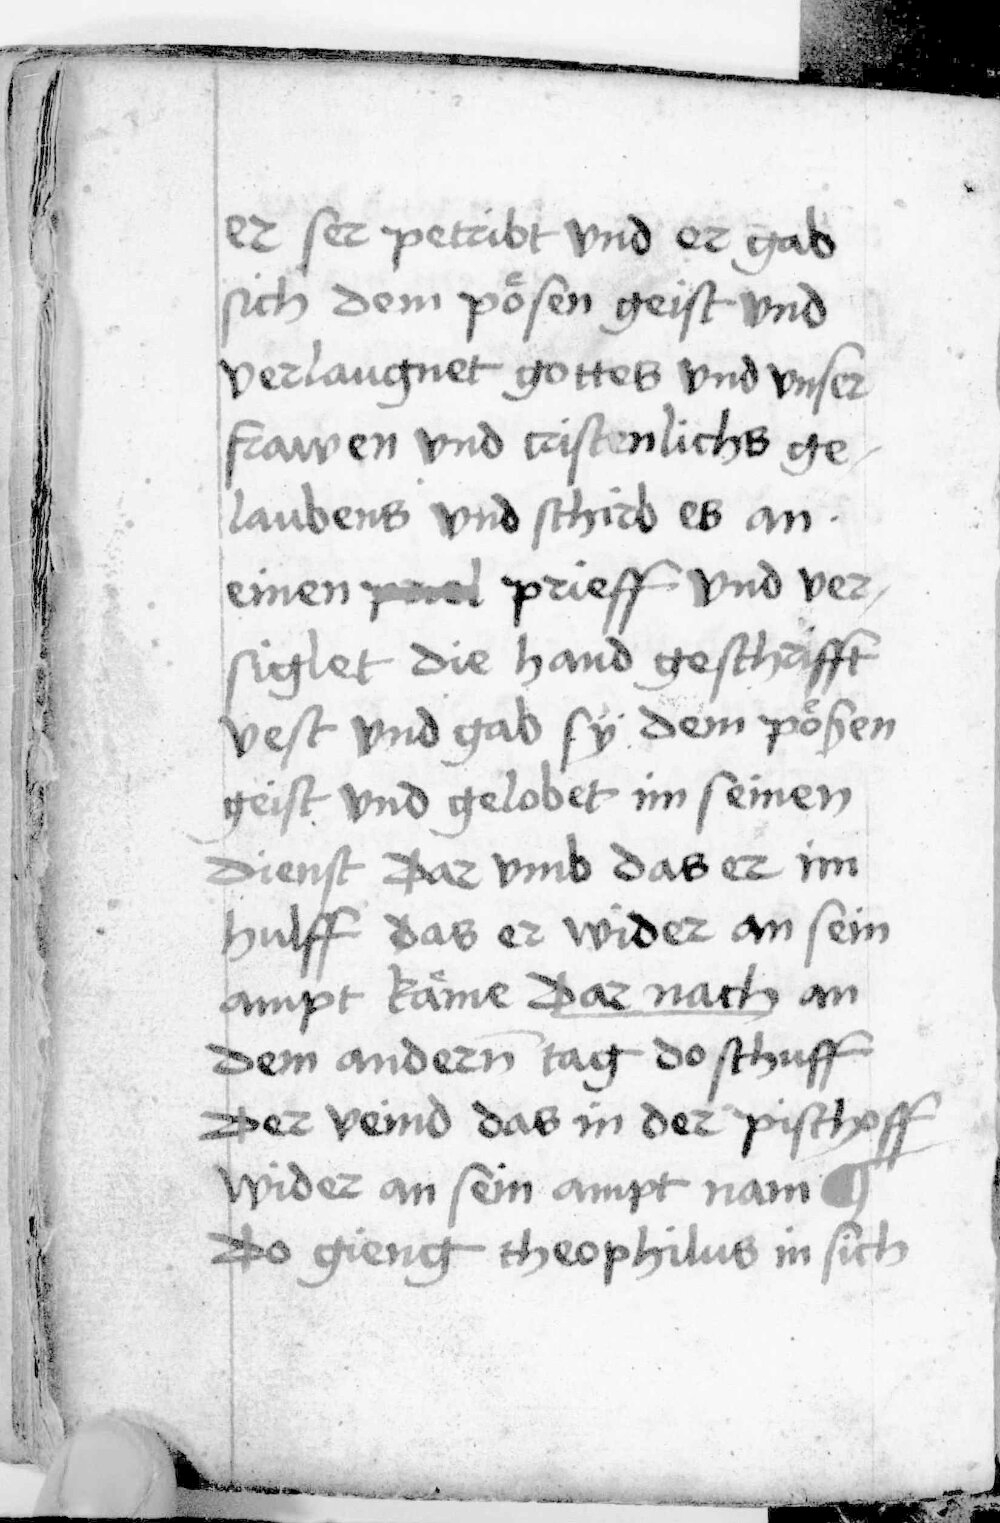 er ser petribt vnd er gab
sich dem poͤsen geist vnd
verlaugnet gottes vnd vnser
frawen vnd cristenlichs ge-
laubens vnd schirb es an
einen prieff vnd ver-
siglet die hand geschrifft
vest vnd gab sÿ dem poͤsen
geist vnd gelobet im seinen
dienst Dar vmb das er im
hulff das er wider an sein
ampt kaͤme Dar nach an
dem andern̄ tag do schuff
Der veind das in der pischoff
wider an sein ampt nam ¶
Do gieng theophilus in sich